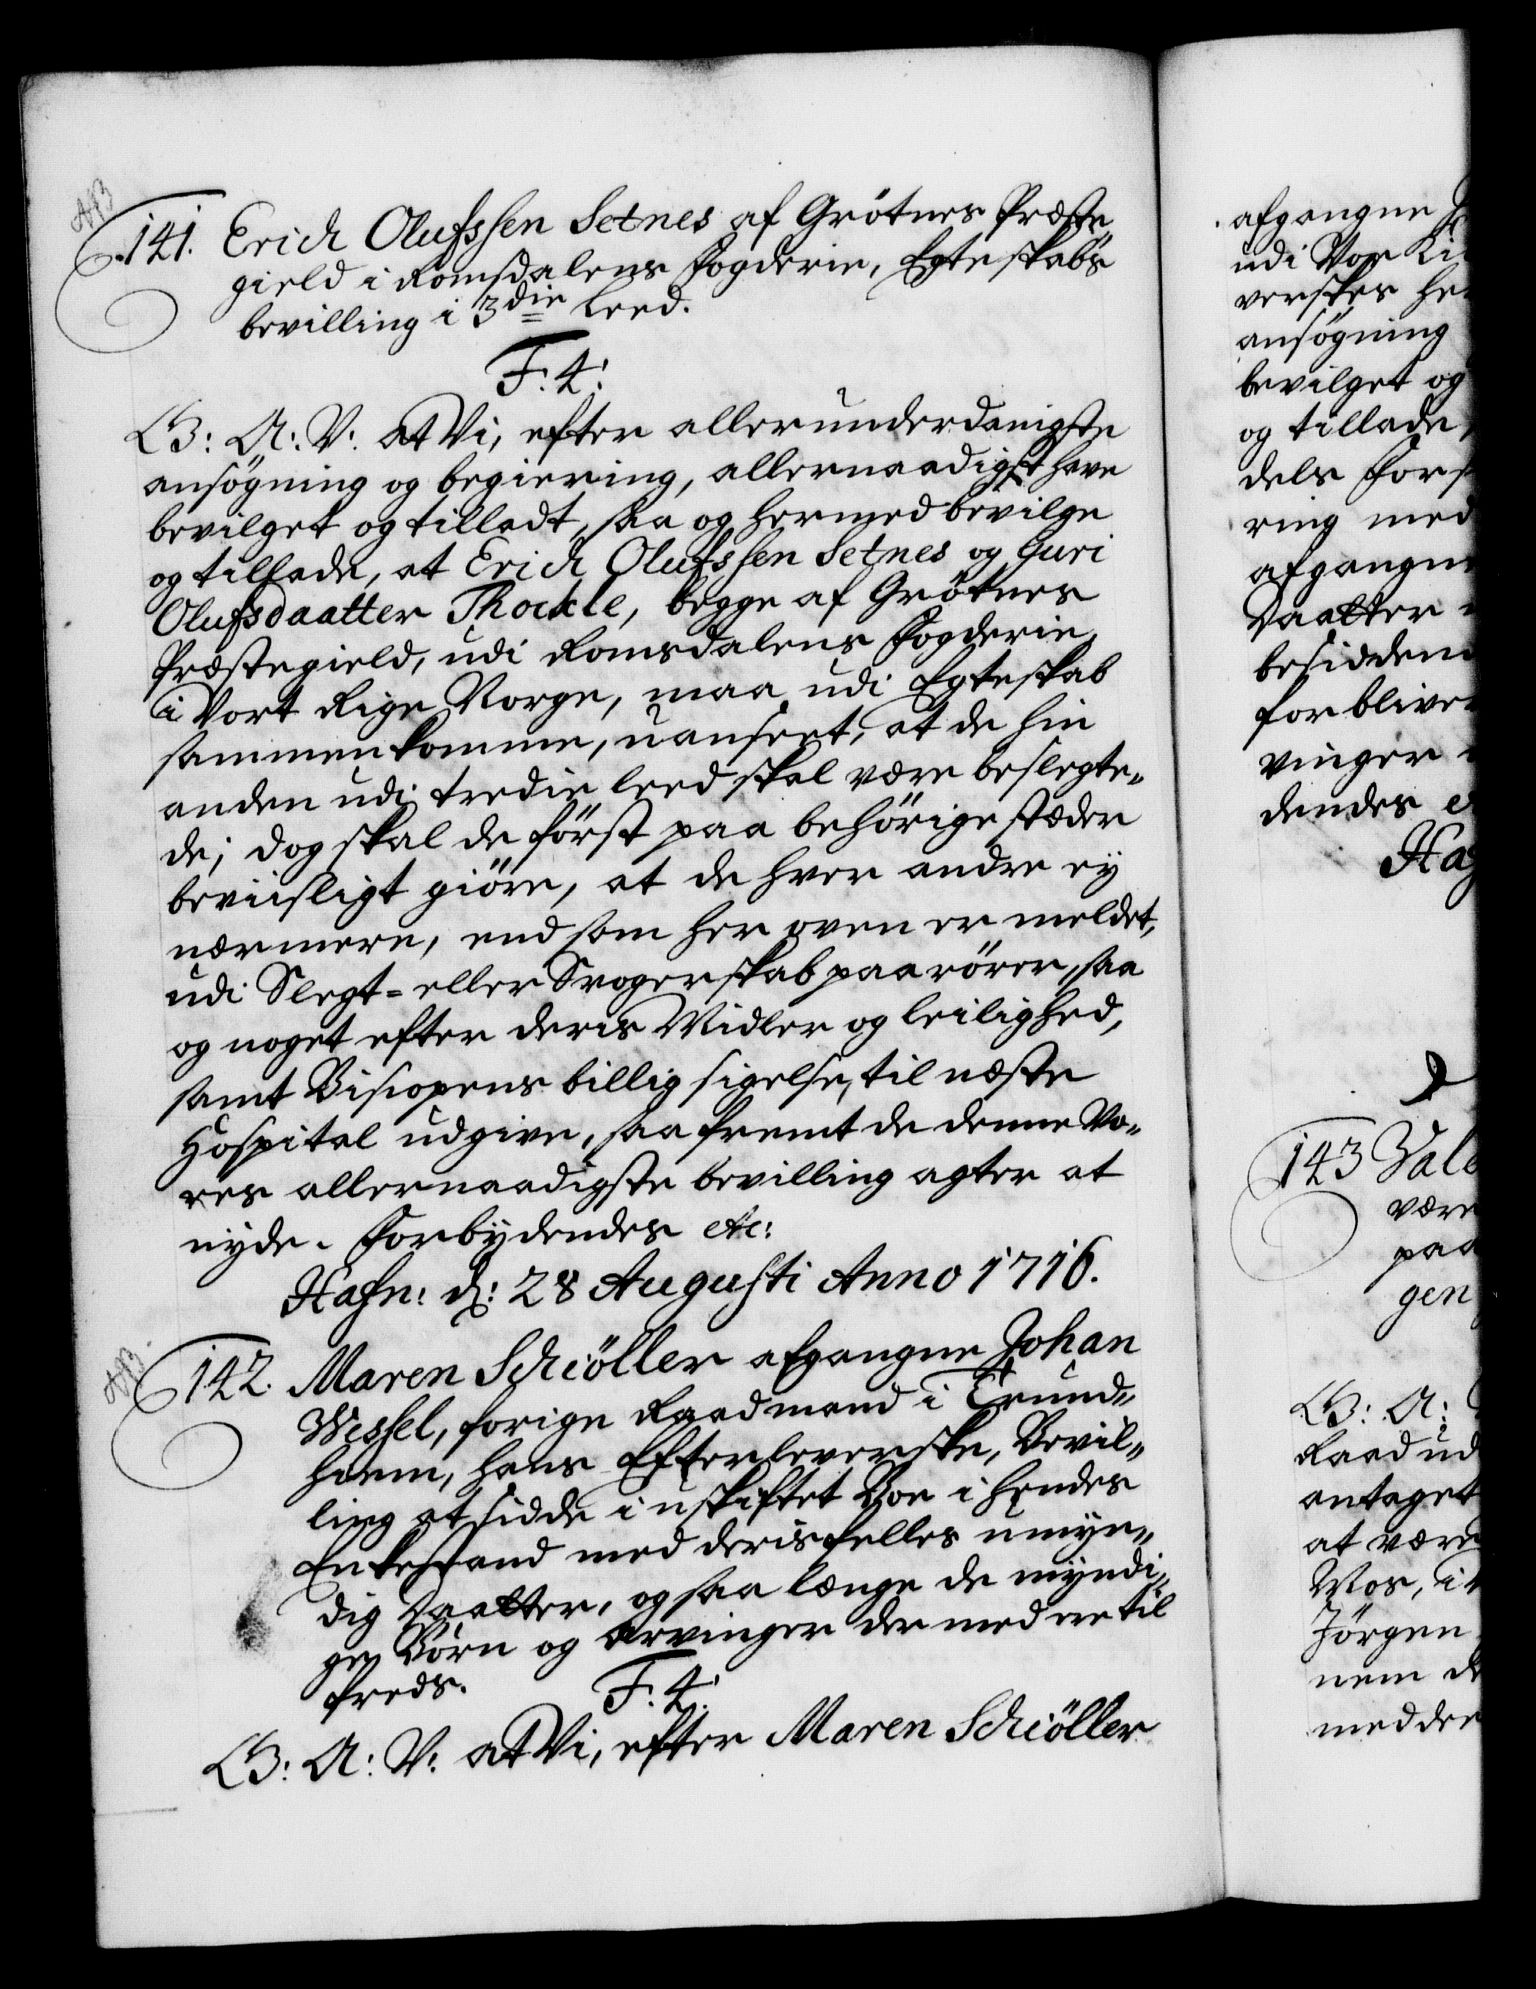 141. Erich Olufssen Setnes af Grötnes Præste
gield i Romsdalens Fogderie, Egteskabs
bevilling i 3die Leed.
F. 4:
G: A: V: at Vi, efter allerunderdanigste
ansögning og begiering, allernaadigst have
bevilget og tilladt, saa og hermed bevilge
og tillade, at Erich Olufssen Setnes og Guri
Olufsdaatter Thockle, begge af Grötnes
Præstegield, udi Romsdalens Fogderie,
i Vort Rige Norge, maa udi Egteskab
sammenkomme, uanseet, at de hin
anden udi tredie leed skal være beslegte„
de; dog skal de först paa behörige stæder
beviisligt giöre, at de hver andre ey
nærmere, end som her oven er meldet,
udi Slegt= eller Svogerskab paarörer, saa
og noget efter deris Midler og leilighed,
samt Biscopens billig sigelse, til næste
Hospital udgive, saa fremt de denne Vo„
res allernaadigste bevilling agter at
nyde. Forbydendes etc:
Hafn: d: 28 Augusti Anno 1716.
142. Maren Schiöller afgangne Johan
Wessel, forige Raadmand i Trund„
hiem, hans Efterleverske, Bevil„
ling at sidde i uskiftet Boe i hendes
Enkestand med deris felles umyn„
dig Daatter, og saa længe de myndi„
ge Börn og Arvinger der med ere til
freds.
F. 4:
G: A: V: at Vi, efter Maren Schiöller
afgangne
udi Vor
verskes
ansögning
bevilget og
og tillade
dels
ring med
afgangne
Daatter
forbliver
vinger
dendes
143
være
paa
gen
G: A:
Raad ud
antaget
at være
Vos, i
Jörgen
nem